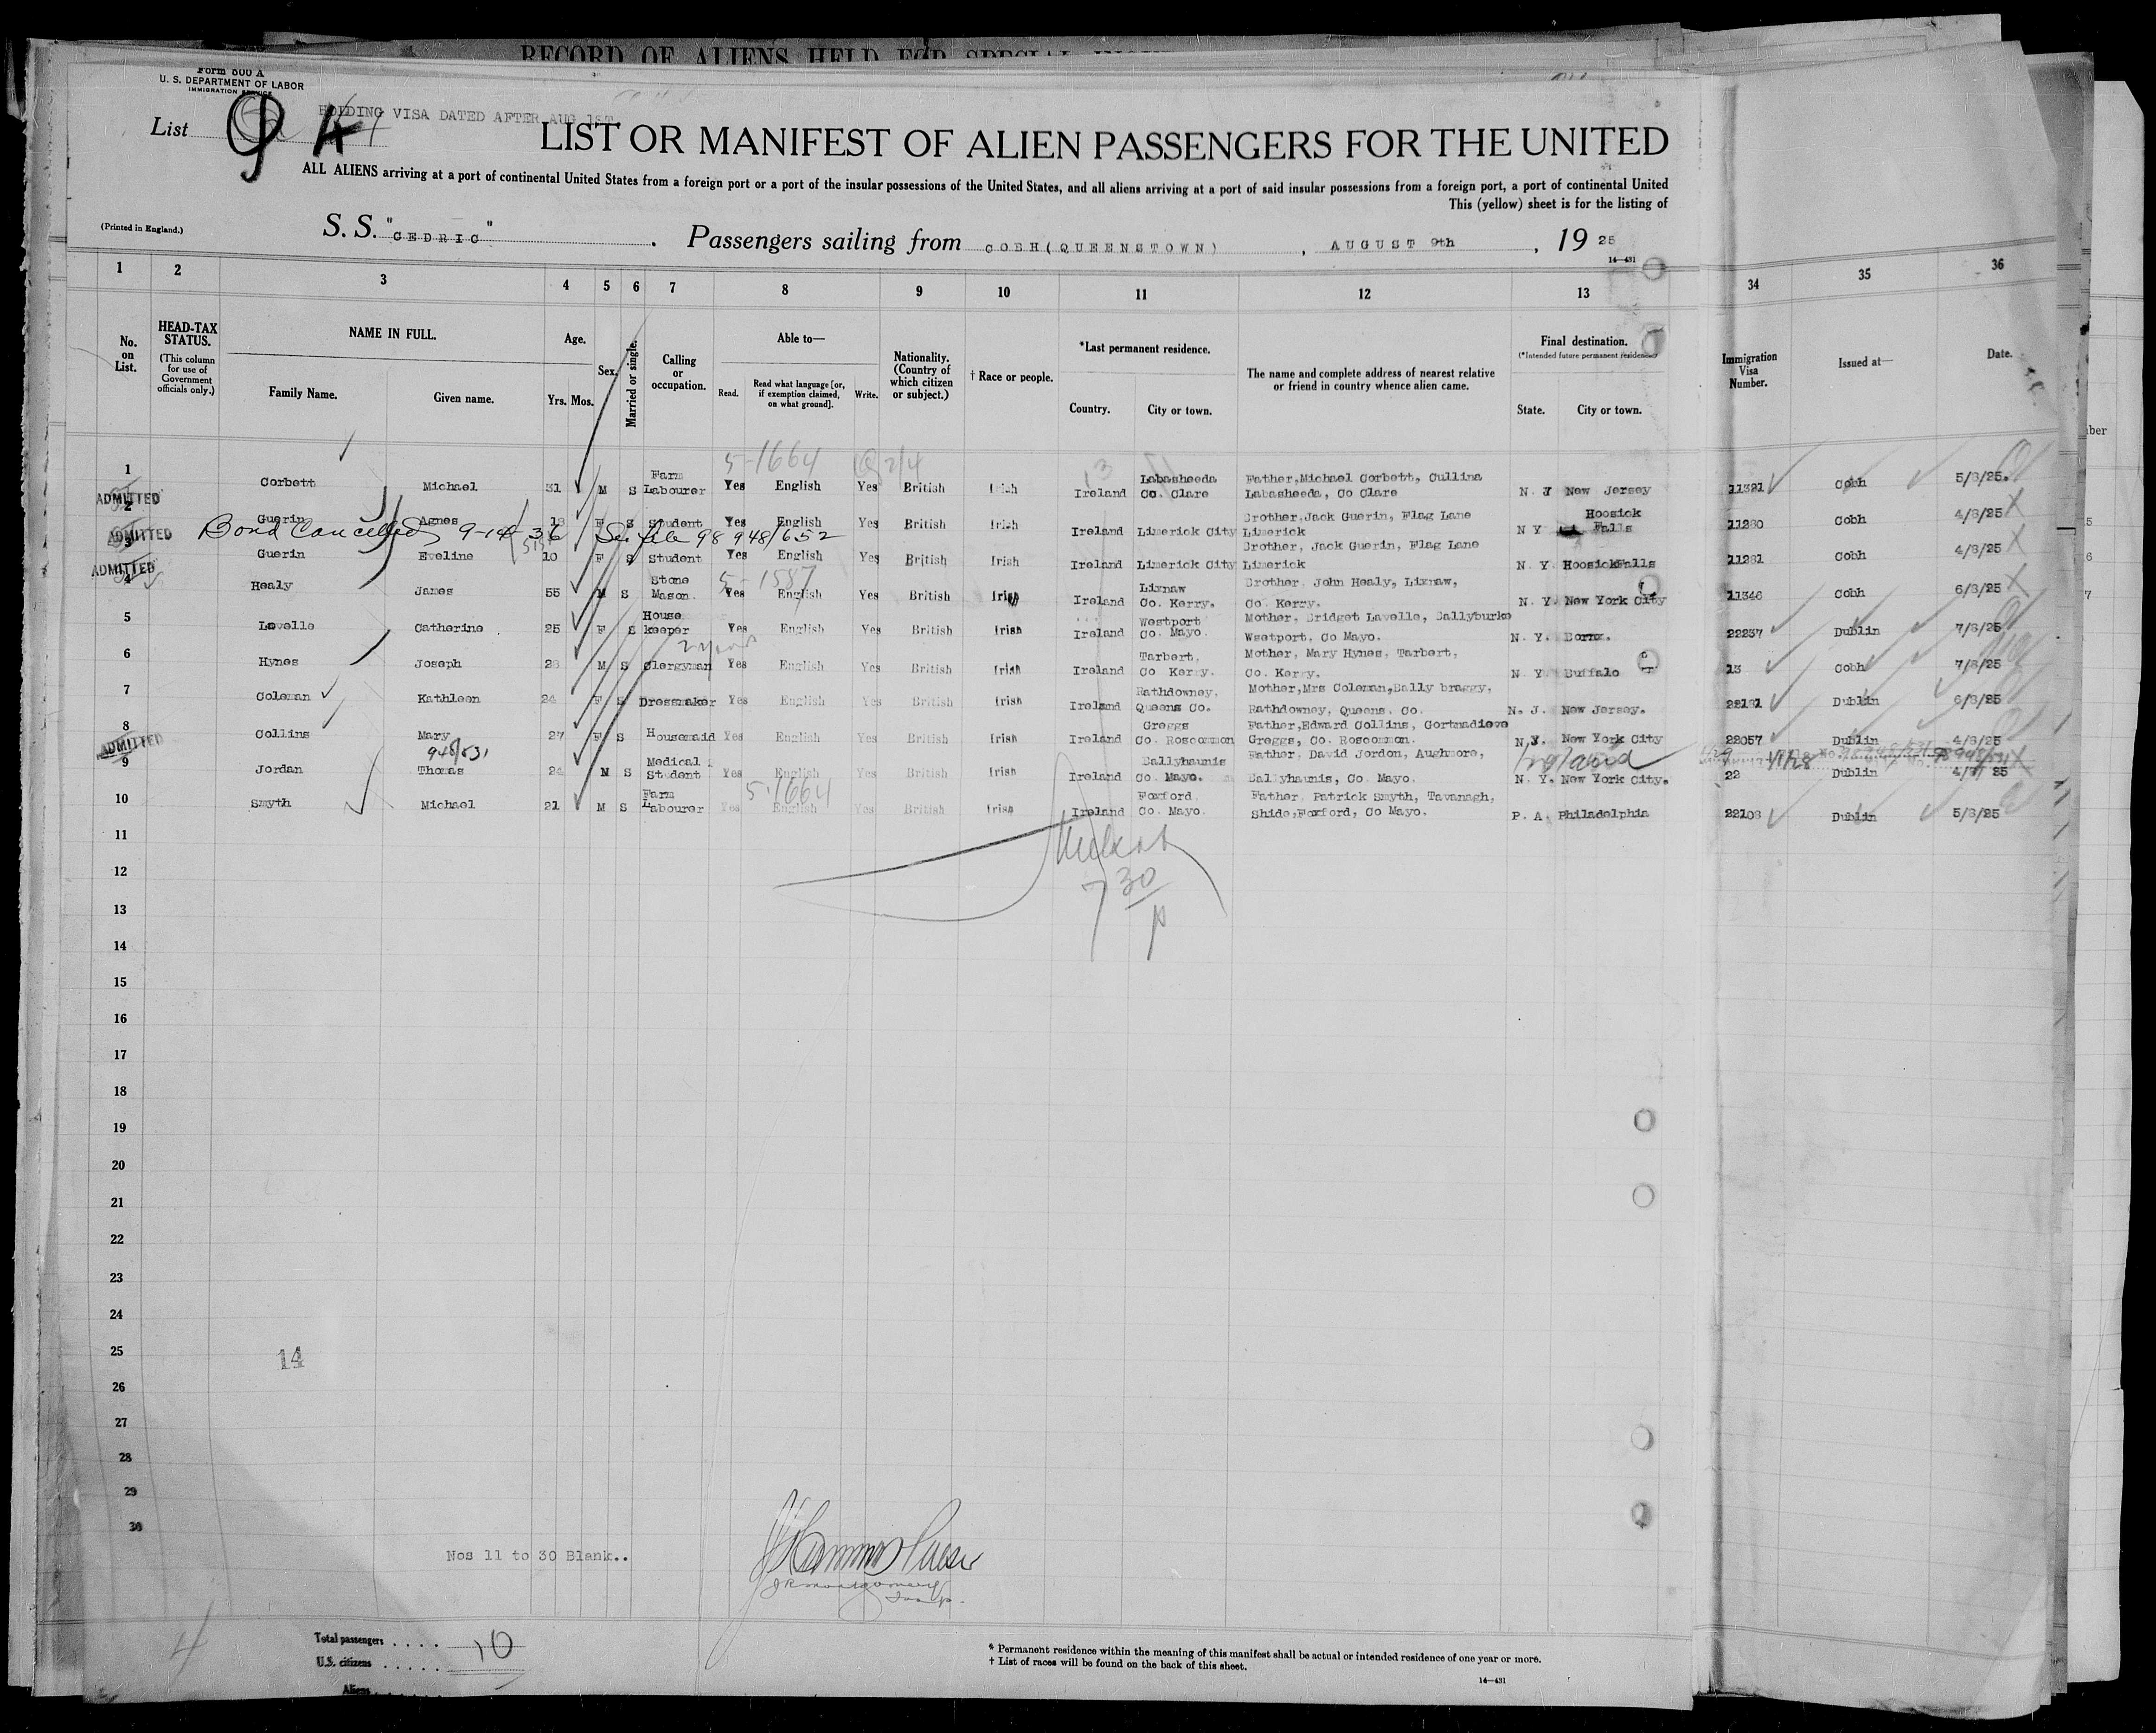 RECORD OF ALIENS HELD FOR SPECIAL
Form 500 A
U. S. DEPARTMENT OF LABOR
IMMIGRATION SERVICE
HOLDING VISA DATED AFTER AUG 1ST
List 9 A
LIST OR MANIFEST OF ALIEN PASSENGERS FOR THE UNITED
ALL ALIENS arriving at a port of continental United States from a foreign port or a port of the insular possessions of the United States, and all aliens arriving at a port of said insular possessions from a foreign port, a port of continental United
This (yellow) sheet is for the listing of
(Printed in England.)
S. S. "CEDRIC" . Passengers sailing from COBH(QUEENSTOWN) , AUGUST 9th , 19 25
14—431
1 2 3 4 5 6 7 8 9 10 11 12 13 34 35 36
No. on List.
HEAD-TAX STATUS.
(This column for use of Government officials only.)
NAME IN FULL.
Family Name. Given name.
Age.
Yrs. Mos.
Sex.
Married or single.
Calling or occupation.
Able to—
Read. Read what language [or, if exemption claimed, on what ground]. Write.
Nationality. (Country of which citizen or subject.)
† Race or people.
*Last permanent residence.
Country. City or town.
The name and complete address of nearest relative or friend in country whence alien came.
Final destination.
(*Intended future permanent residence.)
State. City or town.
Immigration Visa Number.
Issued at—
Date.
5-1664
1 Corbett Michael 31 M S Farm Labourer Yes English Yes British Irish Ireland Labasheeda Co. Clare Father,Michael Corbett, Cullina Labasheeda, Co Clare N J New Jersey 11321 Cobh 5/8/25.
ADMITTED
2 Guerin Agnes 18 F S Student Yes English Yes British Irish Ireland Limerick City Brother,Jack Guerin, Flag Lane Limerick N Y Hoosick Falls 11280 Cobh 4/8/25
ADMITTED
Bond Cancelled 9-14-36 See file 98948/652
3 Guerin Eveline 10 F S Student Yes English Yes British Irish Ireland Limerick City Brother, Jack Guerin, Flag Lane Limerick N. Y. HoosickFalls 11281 Cobh 4/8/25
ADMITTED
5-1587
4 Healy James 55 M S Stone Mason. Yes English Yes British Irish Ireland Lixnaw Co. Kerry. Brother, John Healy, Lixnaw, Co. Kerry. N. Y. New York City 11346 Cobh 6/8/25
5 Lavelle Catherine 25 F S House keeper Yes English Yes British Irish Ireland Westport Co. Mayo. Mother, Bridget Lavelle, Ballyburke Westport, Co Mayo. N. Y. Bornx. 22237 Dublin 7/8/25
6 Hynes Joseph 28 M S Clergyman Yes English Yes British Irish Ireland Tarbert, Co Kerry. Mother, Mary Hynes, Tarbert, Co. Kerry. N. Y. Buffalo 13 Cobh 7/8/25
7 Coleman Kathleen 24 F S Dressmaker Yes English Yes British Irish Ireland Rathdowney, Queens Co. Mother,Mrs Coleman,Bally braggy, Rathdowney, Queens. Co. N. J. New Jersey. 22181 Dublin 6/8/25
8 Collins Mary 27 F S Housemaid Yes English Yes British Irish Ireland Greggs Co. Roscommon Father,Edward Collins, Gortnadieve Greggs, Co. Roscommon. N.Y. New York City 22057 Dublin 4/8/25
ADMITTED
948/531
9 Jordan Thomas 24 M S Medical Student Yes English Yes British Irish Ireland Ballyhaunis Co. Mayo. Father, David Jordon, Aughmore, Ballyhaunis, Co. Mayo. N. Y. New York City. 22 Dublin 4/8/25
5-1664
10 Smyth Michael 21 M S Farm Labourer Yes English Yes British Irish Ireland Foxford, Co. Mayo. Father, Patrick Smyth, Tavanagh, Shide,Foxford, Co Mayo. P. A. Philadelphia 22108 Dublin 5/8/25
11
12
7 30
p
13
14
15
16
17
18
19
20
21
22
23
24
25
14
26
27
28
29
30
Nos 11 to 30 Blank..
JR Montgomery
Insp.
4
Total passengers . . . . 10
U.S. citizens . . . . .
Aliens
* Permanent residence within the meaning of this manifest shall be actual or intended residence of one year or more.
† List of races will be found on the back of this sheet.
14—431